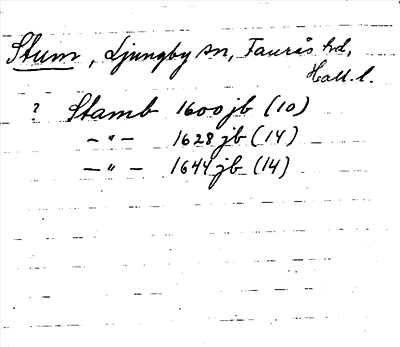 Stum, Ljungby sn, Faurås hd,
Hall. l.
? Stamb 1600 jb (10)
—"— 1628 jb (14)
—"— 1644 jb (14)